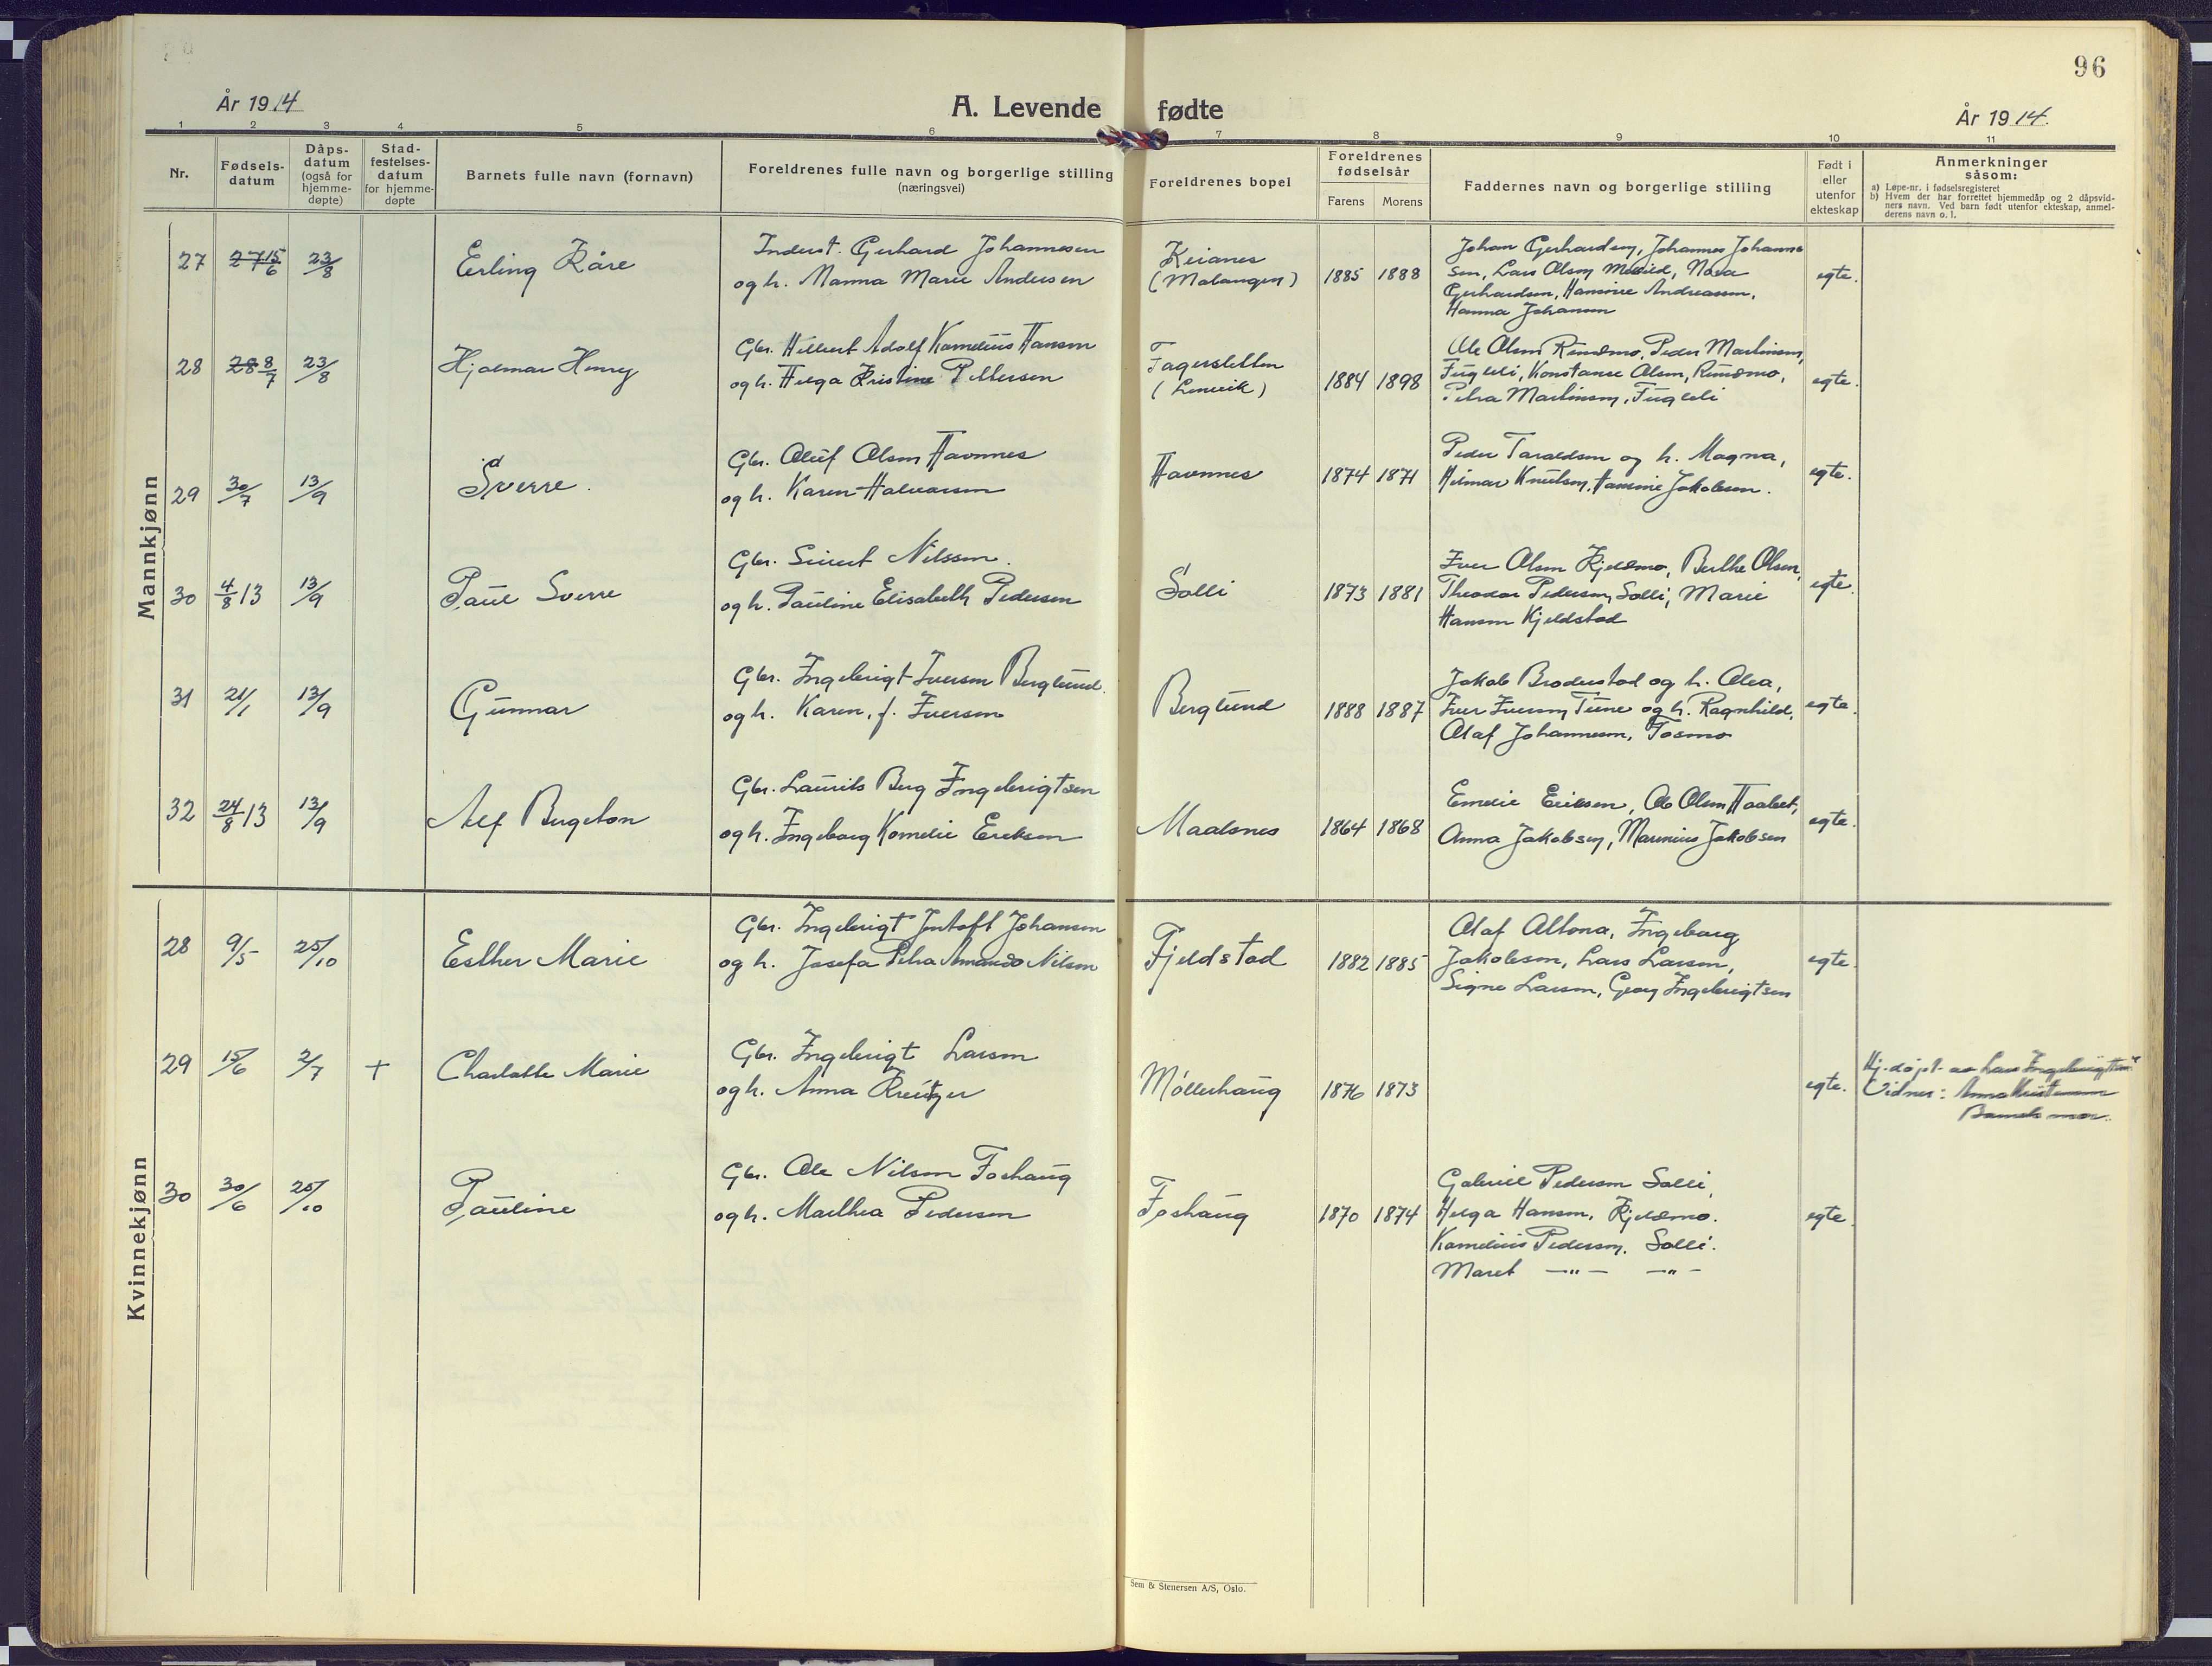 96
År 1914
A. Levende fødte
År 1914.
1 2 3 4 5 6 7 8 9 10 11
Nr.
Fødsels-
datum
Dåps-
datum
(også for
hjemme-
døpte)
Stad-
festelses-
datum
for hjemme-
døpte
Barnets fulle navn (fornavn)
Foreldrenes fulle navn og borgerlige stilling
(næringsvei)
Foreldrenes bopel
Foreldrenes
fødselsår
Farens Morens
Faddernes navn og borgerlige stilling
Født i
eller
utenfor
ekteskap
Anmerkninger
såsom:
a) Løpe-nr. i fødselsregisteret
b) Hvem der har forrettet hjemmedåp og 2 dåpsvid-
ners navn. Ved barn født utenfor ekteskap, anmel-
derens navn o. l.
Mannkjønn
27 27 15/6 23/8 Erling Kåre
Inderst. Gerhard Johannesen
og h. Manna Marie Andersen
Keianes
(Malangen)
1885 1888
Johan Gerhardsen, Johannes Johanne
sen, Lars Olsen, Nova
Gerhardsen, Hansine Andreassen,
Hanna Johansen
egte.
28 28 8/7 23/8 Hjalmar Henry
Gbr. Hilbert Adolf Kornelius Hansen
og h. Helga Kristine Pettersen
Fagersletten
(Lenvik)
1884 1898
Ole Olsen Rundmo, Peder Martinsen,
Fugleli, Konstanse Olsen, Rundmo,
Petra Martinsen, Fugleli
egte.
29 30/7 13/9 Sverre.
Gbr. Oluf Olsen Havnnes
og h. Karen Halvorsen
Havnnes
1874 1871
Peder Taraldsen og h. Magna,
Hilmar Knutsen, Hansine Jakobsen.
egte.
30 4/8 13 13/9 Paul Sverre
Gbr. Sivert Nilssen.
og h. Pauline Elisabeth Pedersen
Solli
1873 1881
Iver Olsen Kjeldmo, Berthe Olsen,
Theodor Pedersen, Solli, Marie
Hansen Kjeldstad
egte.
31 21/1 13/9 Gunnar
Gbr. Ingebrigt Iversen Berglund.
og h. Karen, f. Iversen
Berglund
1888 1887
Jakob Broderstad og h. Olea,
Iver Iversen Tune og h. Ragnhild,
Olaf Johannesen, Fosmo
egte.
32 24/8 13 13/9 Alf Bugeton
Gbr. Laurits Berg Ingebrigtsen
og h. Ingeborg Kornelie Eriksen
Maalsnes
1864 1868
Emelie Eriksen, Ole Olsen,
Anna Jakobsen, Marinius Jakobsen
egte.
Kvinnekjønn
28 9/5 25/10 Esther Marie
Gbr. Ingebrigt Jentoft Johansen
og h. Josefa Petra Amanda Nilsen
Fjeldstad
1882 1885
Olaf Altona, Ingeborg
Jakobsen, Lars Larsen,
Signe Larsen, Georg Ingebrigtsen
egte.
29 15/6 2/7 + Charlotte Marie
Gbr. Ingebrigt Larsen
og h. Anna Kreutzer
Møllerhaug
1876 1873
egte.
Hj. døpt av Lars Ingebrigtsen
Vidner: Anna Kristensen
Barnets mor.
30 30/6 25/10 Pauline
Gbr. Ole Nilsen Foshaug
og h. Marthea Pedersen
Foshaug
1870 1874
Gabriel Pedersen Solli,
Helga Hansen, Kjeldmo.
Kornelius Pedersen, Solli.
Maret —"— —"—
egte.
Sem & Stenersen A/S, Oslo.